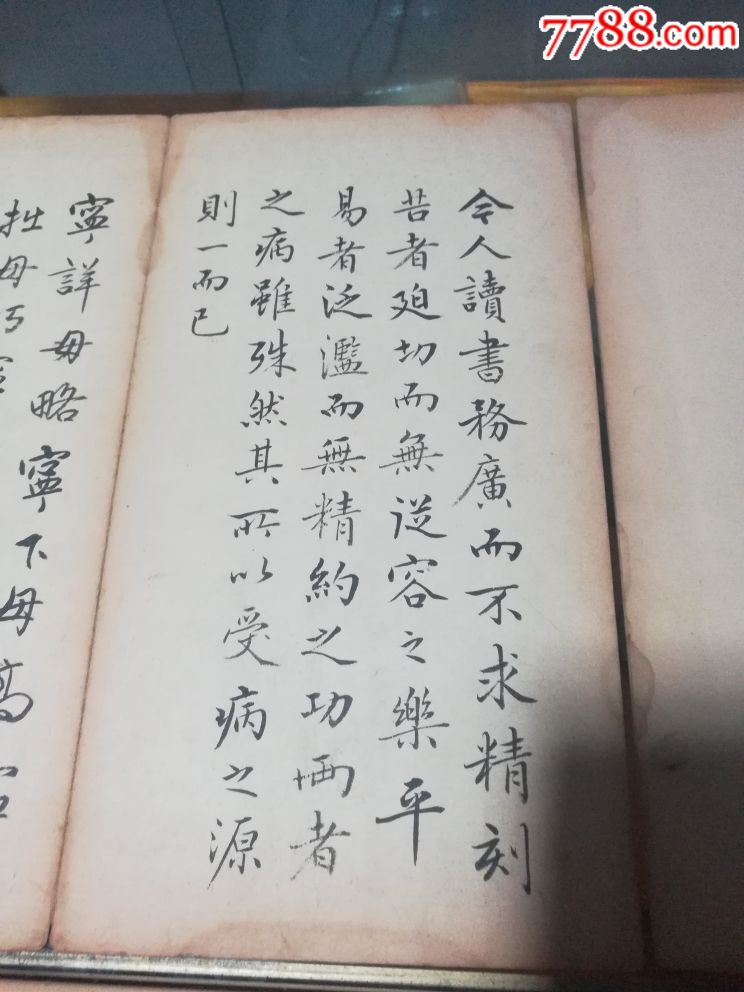 7788.com
今人讀書務廣而不求精刻
苦者迫切而無從容之樂平
易者泛濫而無精約之功兩者
之病雖殊然其所以受病之源
則一而已
寧詳毋略寧下毋高
拙毋巧